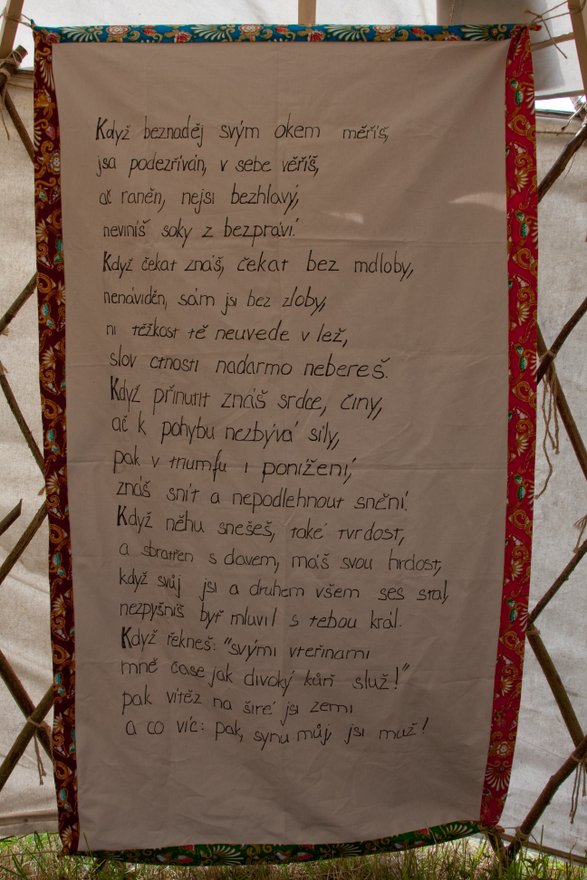 Když beznaděj svým okem měříš,
jsa podezříván, v sebe věříš,
ač raněn, nejsi bezhlavý,
neviníš soky z bezpráví.
Když čekat znáš, čekat bez mdloby,
nenáviděn, sám jsi bez zloby,
ni těžkost tě neuvede v lež,
slov ctnosti nadarmo nebereš.
Když přinutit znáš srdce, činy,
ač k pohybu nezbývá síly,
pak v triumfu i ponížení,
znáš snít a nepodlehnout snění.
Když něhu sneseš, také tvrdost,
a sbratřen s davem, máš svou hrdost,
když svůj jsi a druhem všem ses stal,
nezpyšníš byť mluvil s tebou král.
Když řekneš: "svými vteřinami
mně čase jak divoký kůň služ!"
pak vítěz na šíré jsi zemi
a co víc: pak, synu můj, jsi muž!